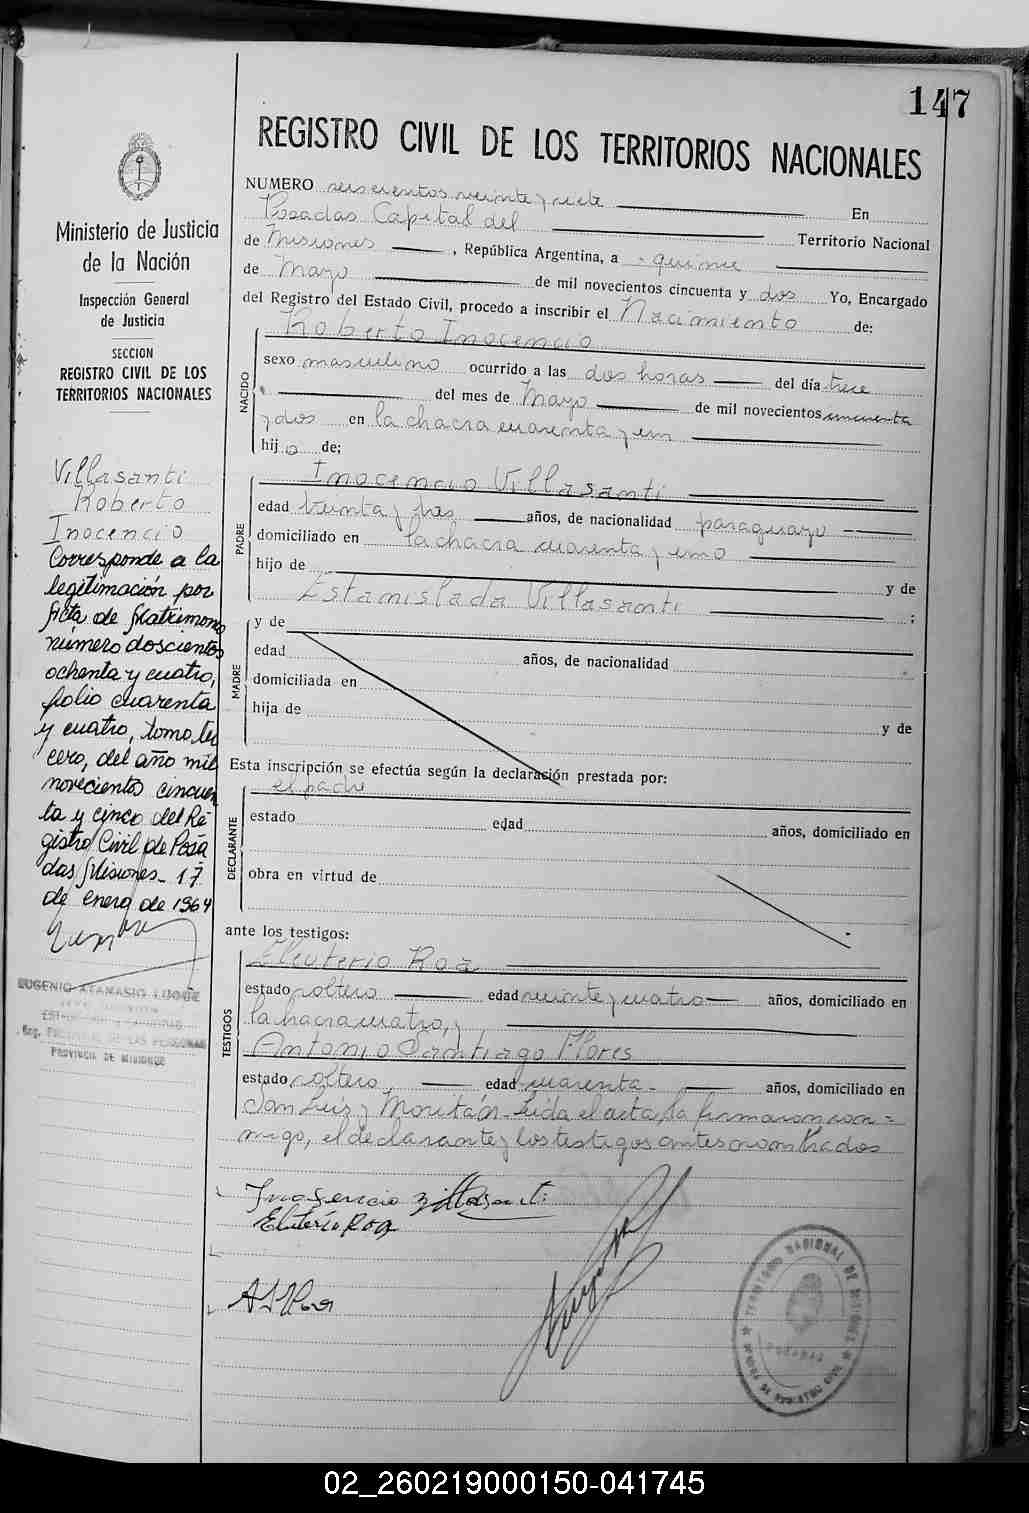 147
REGISTRO CIVIL DE LOS TERRITORIOS NACIONALES
Ministerio de Justicia
de la Nación
Inspección General
de Justicia
SECCION
REGISTRO CIVIL DE LOS
TERRITORIOS NACIONALES
Villasanti
Roberto
Inocencio
Corresponde a la
legitimación por
Acta de Matrimonio
número doscientos
ochenta y cuatro,
folio cuarenta
y cuatro, tomo ter
cero, del año mil
novecientos cincuen
ta y cinco del Re
gistro Civil de Posa
das Misiones - 17
de enero de 1964
EUGENIO ATANASIO LUQUE
PROVINCIA DE MISIONES
NUMERO seiscientos veinte y siete En
Posadas Capital del Territorio Nacional
de Misiones, República Argentina, a quince
de Mayo de mil novecientos cincuenta y dos Yo, Encargado
del Registro del Estado Civil, procedo a inscribir el Nacimiento de:
NACIDO
Roberto Inocencio
sexo masculino ocurrido a las dos horas del día trece
del mes de Mayo de mil novecientos cincuenta
y dos en la chacra cuarenta y un
hijo de;
PADRE
Inocencio Villasanti
edad treinta y tres años, de nacionalidad paraguayo
domiciliado en la chacra cuarenta y uno
hijo de y de
Estanislada Villasanti ;
MADRE
y de
edad años, de nacionalidad
domiciliada en
hija de y de
Esta inscripción se efectúa según la declaración prestada por:
DECLARANTE
el padre
estado edad años, domiciliado en
obra en virtud de
ante los testigos:
TESTIGOS
Eleuterio Roa
estado soltero edad veinte y cuatro años, domiciliado en
la chacra cuatro, y
Antonio Santiago Flores
estado soltero, edad cuarenta - años, domiciliado en
San Luis y Moritán. Leida el acta, la firmaron con=
migo, el declarante y los testigos antes nombrados
Inosencio Villasanti
Eluterio Roa
TERRITORIO NACIONAL DE MISIONES
POSADAS
OFICINA DE REGISTRO CIVIL
02_260219000150-041745